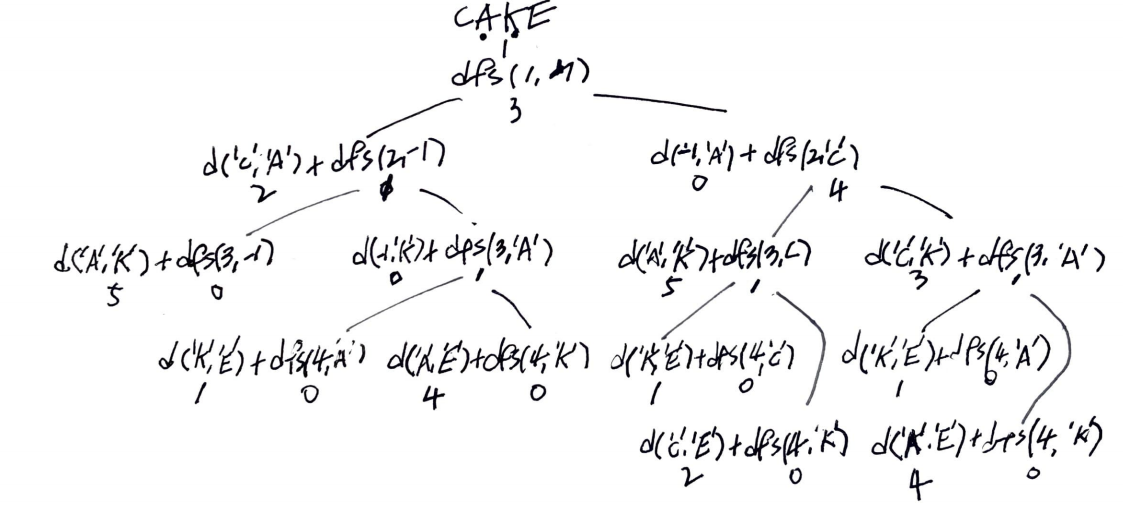 CAKE
1
dfs(1, -1)
3
d('C','A') + dfs(2,-1)
2 1
d(-1,'A') + dfs(2,'C')
0 4
d('A','K') + dfs(3,-1)
5 0
d(-1,'K') + dfs(3,'A')
0 1
d('A','K') + dfs(3,'C')
5 1
d('C','K') + dfs(3,'A')
3 1
d('K','E') + dfs(4,'A')
1 0
d('A','E') + dfs(4,'K')
4 0
d('K','E') + dfs(4,'C')
1 0
d('K','E') + dfs(4,'A')
1 0
d('C','E') + dfs(4,'K')
2 0
d('A','E') + dfs(4,'K')
4 0